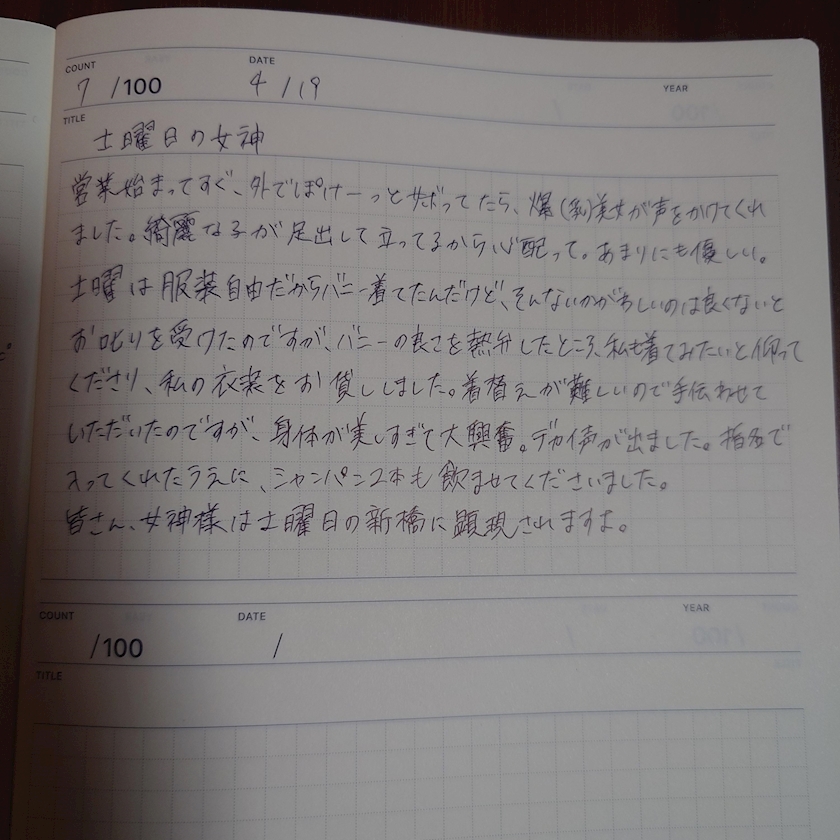 COUNT DATE YEAR
7 /100 4 /19
TITLE
土曜日の女神
営業始まってすぐ、外でぽけーっとサボってたら、爆(乳)美女が声をかけてくれ
ました。綺麗な子が足出して立ってるから心配って。あまりにも優しい。
土曜は服装自由だからバニー着てたんだけど、そんないかがわしいのは良くないと
お叱りを受けたのですが、バニーの良さを熱弁したところ、私も着てみたいと仰って
くださり、私の衣装をお貸ししました。着替えが難しいので手伝わせて
いただいたのですが、身体が美しすぎて大興奮。デカイ声が出ました。指名で
入ってくれたうえに、シャンパン2本も飲ませてくださいました。
皆さん、女神様は土曜日の新橋に顕現されますよ。
COUNT DATE YEAR
/100 /
TITLE